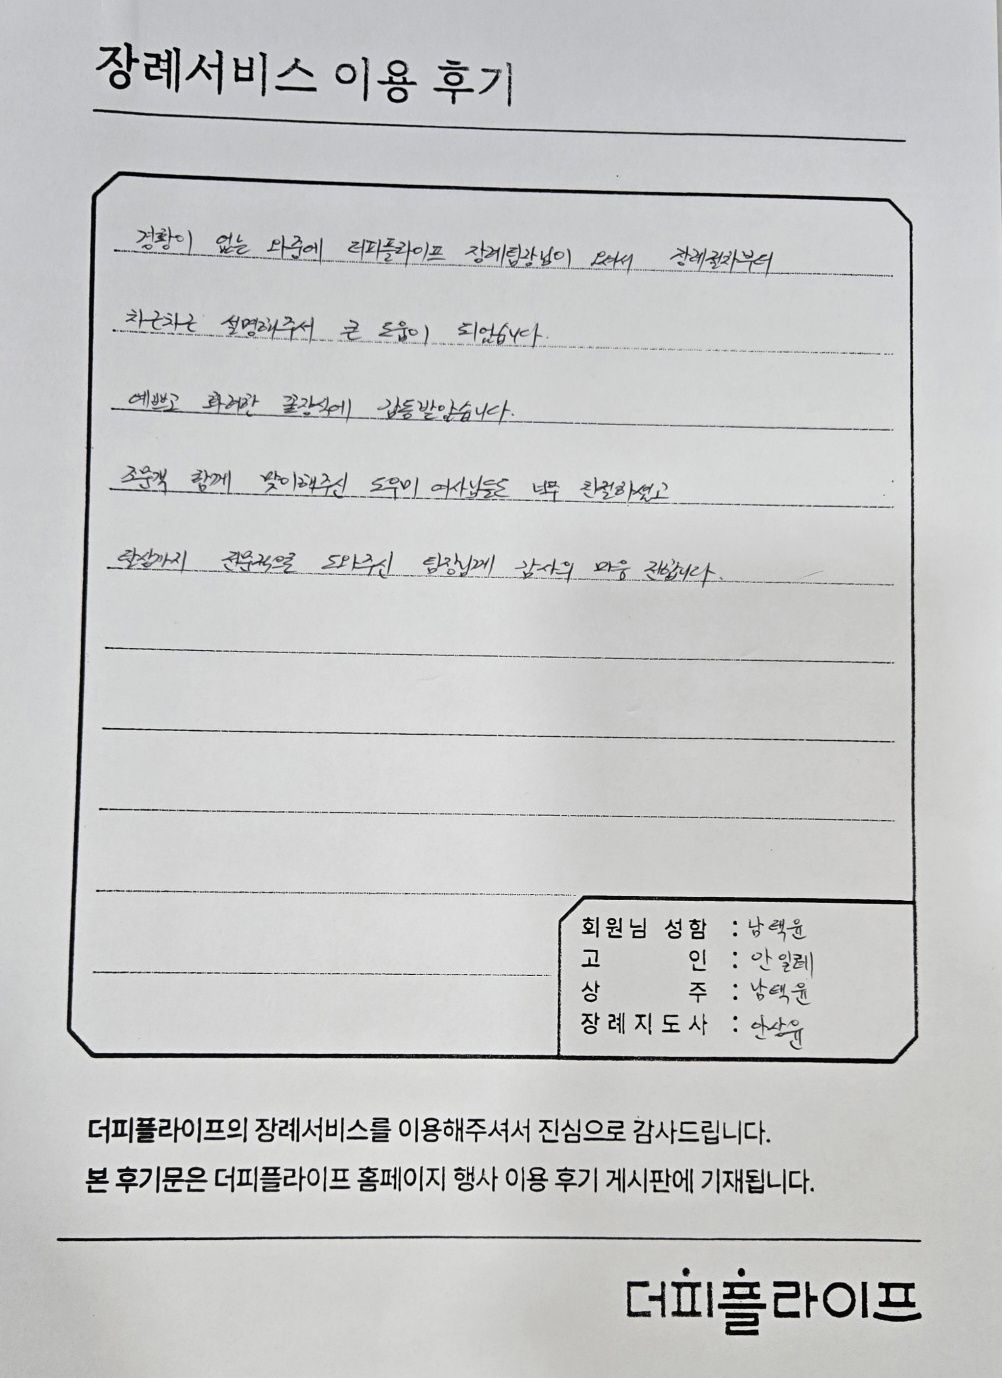 장례서비스 이용 후기
경황이 없는 와중에 더피플라이프 장례팀장님이 오셔서 장례절차부터
차근차근 설명해주셔서 큰 도움이 되었습니다.
예쁘고 화려한 꽃장식에 감동받았습니다.
조문객 함께 맞이해주신 도우미 여사님들도 너무 친절하셨고
탈상까지 전문적으로 도와주신 팀장님께 감사의 마음 전합니다.
회원님 성함 : 남택윤
고 인 : 안일례
상 주 : 남택윤
장례지도사 : 안상윤
더피플라이프의 장례서비스를 이용해주셔서 진심으로 감사드립니다.
본 후기문은 더피플라이프 홈페이지 행사 이용 후기 게시판에 기재됩니다.
더피플라이프